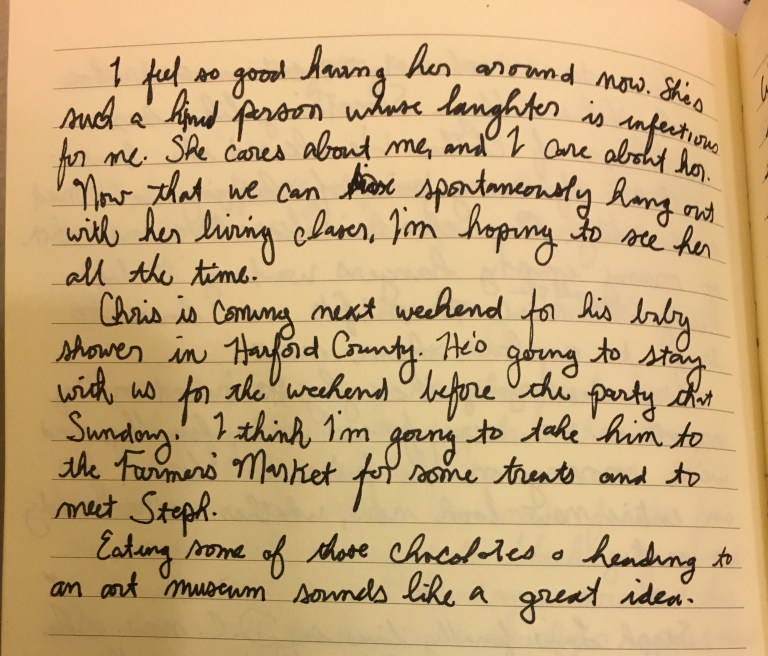 I feel so good having her around now. She's
such a kind person whose laughter is infectious
for me. She cares about me, and I care about her.
Now that we can spontaneously hang out
with her living closer, I'm hoping to see her
all the time.
Chris is coming next weekend for his baby
shower in Harford County. He's going to stay
with us for the weekend before the party that
Sunday. I think I'm going to take him to
the Farmers' Market for some treats and to
meet Steph.
Eating some of those chocolates & heading to
an art museum sounds like a great idea.